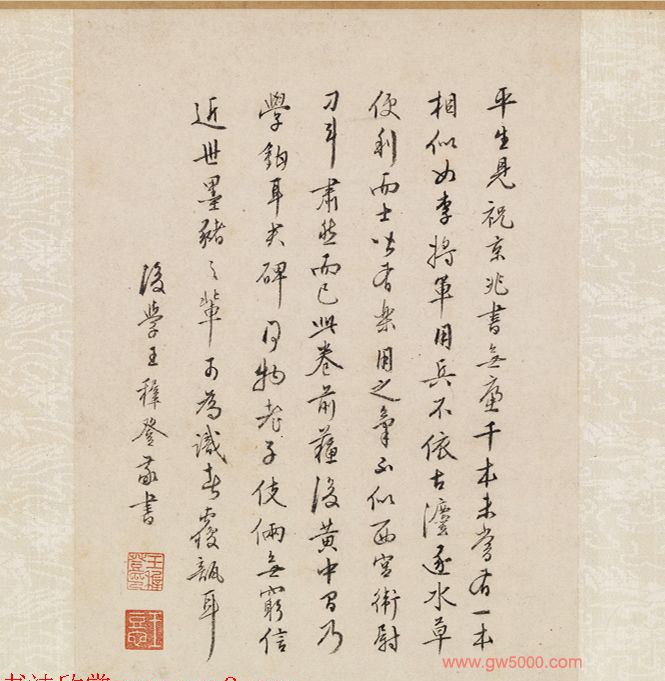 平生見祝京兆書無慮千本未嘗有一本
相似如李將軍用兵不依古灋逐水草
便利而士皆有樂用之氣不似西宮衛尉
刁斗肅然而已此卷前蘓後黃中間乃
學耳碑物老子伎倆無窮信
近世墨豬之輩可為識者覆瓿耳
後學王穉登敬書
王穉登印
www.gw5000.com
书法欣赏